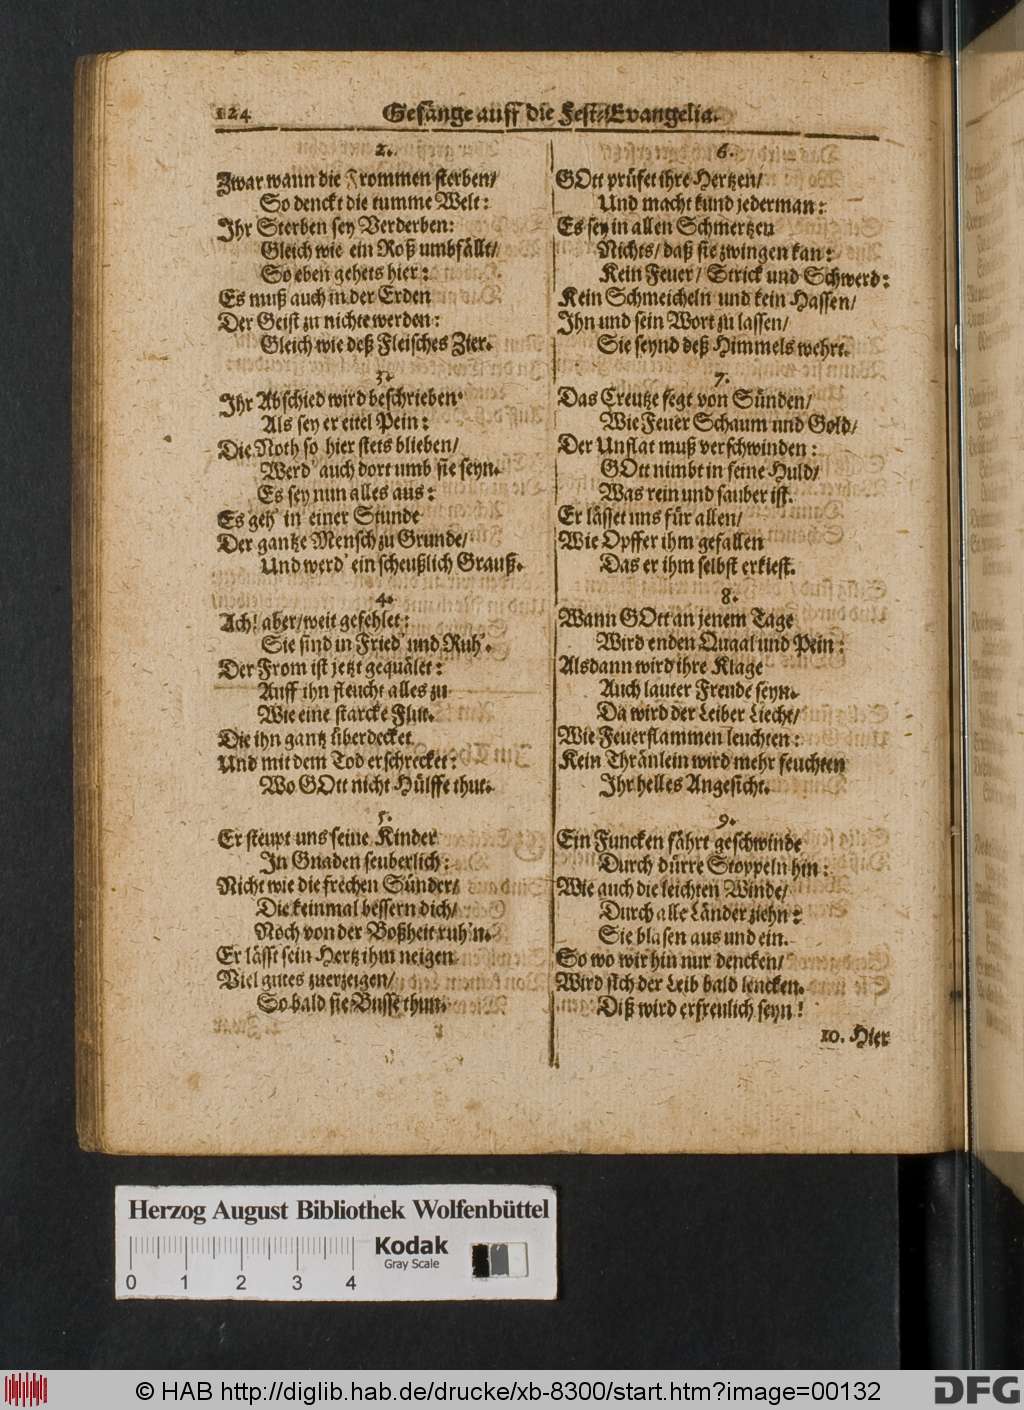 124
Gesänge auff die Fest-Evangelia.
2.
Zwar wann die Frommen sterben/
So denckt die tumme Welt:
Ihr Sterben sey Verderben:
Gleich wie ein Roß umbfällt/
So eben gehets hier:
Es muß auch in der Erden
Der Geist zu nichte werden:
Gleich wie deß Fleisches Zier.
3.
Ihr Abschied wird beschrieben
Als sey er eitel Pein:
Die Noth so hier stets blieben/
Werd' auch dort umb sie seyn.
Es sey nun alles aus:
Es geh' in einer Stunde
Der gantze Mensch zu Grunde/
Und werd' ein scheußlich Grauß.
4.
Ach! aber/weit gefehlet:
Sie sind in Fried' und Ruh'.
Der From ist jetzt gequälet:
Auff ihn fleucht alles zu
Wie eine starcke Flut.
Die ihn gantz überdecket
Und mit dem Tod erschrecket:
Wo GOtt nicht Hülffe thut.
5.
Er steupt uns seine Kinder
In Gnaden seuberlich:
Nicht wie die frechen Sünder/
Die keinmal bessern dich/
Noch von der Boßheit ruh'n.
Er lässt sein Hertz ihm neigen
Viel gutes zuerzeigen/
So bald sie Busse thun.
6.
GOtt prüfet ihre Hertzen/
Und macht kund jederman:
Es sey in allen Schmertzen
Nichts/ daß sie zwingen kan:
Kein Feuer/ Strick und Schwerd:
Kein Schmeicheln und kein Hassen/
Ihn und sein Wort zu lassen/
Sie seynd deß Himmels wehrt.
7.
Das Creutze fegt von Sünden/
Wie Feuer Schaum und Gold/
Der Unflat muß verschwinden:
GOtt nimbt in seine Huld/
Was rein und sauber ist.
Er lässet uns für allen/
Wie Opffer ihm gefallen
Das er ihm selbst erkiest.
8.
Wann GOtt an jenem Tage
Wird enden Quaal und Pein:
Alsdann wird ihre Klage
Auch lauter Freude seyn.
Da wird der Leiber Liecht/
Wie Feuerflammen leuchten:
Kein Thränlein wird mehr feuchten
Ihr helles Angesicht.
9.
Ein Funcken fährt geschwinde
Durch dürre Stoppeln hin:
Wie auch die leichten Winde/
Durch alle Länder ziehn:
Sie blasen aus und ein.
So wo wir hin nur dencken/
Wird sich der Leib bald lencken.
Diß wird erfreulich seyn!
10. Hier
Herzog August Bibliothek Wolfenbüttel
Kodak
Gray Scale
0 1 2 3 4
© HAB http://diglib.hab.de/drucke/xb-8300/start.htm?image=00132
DFG